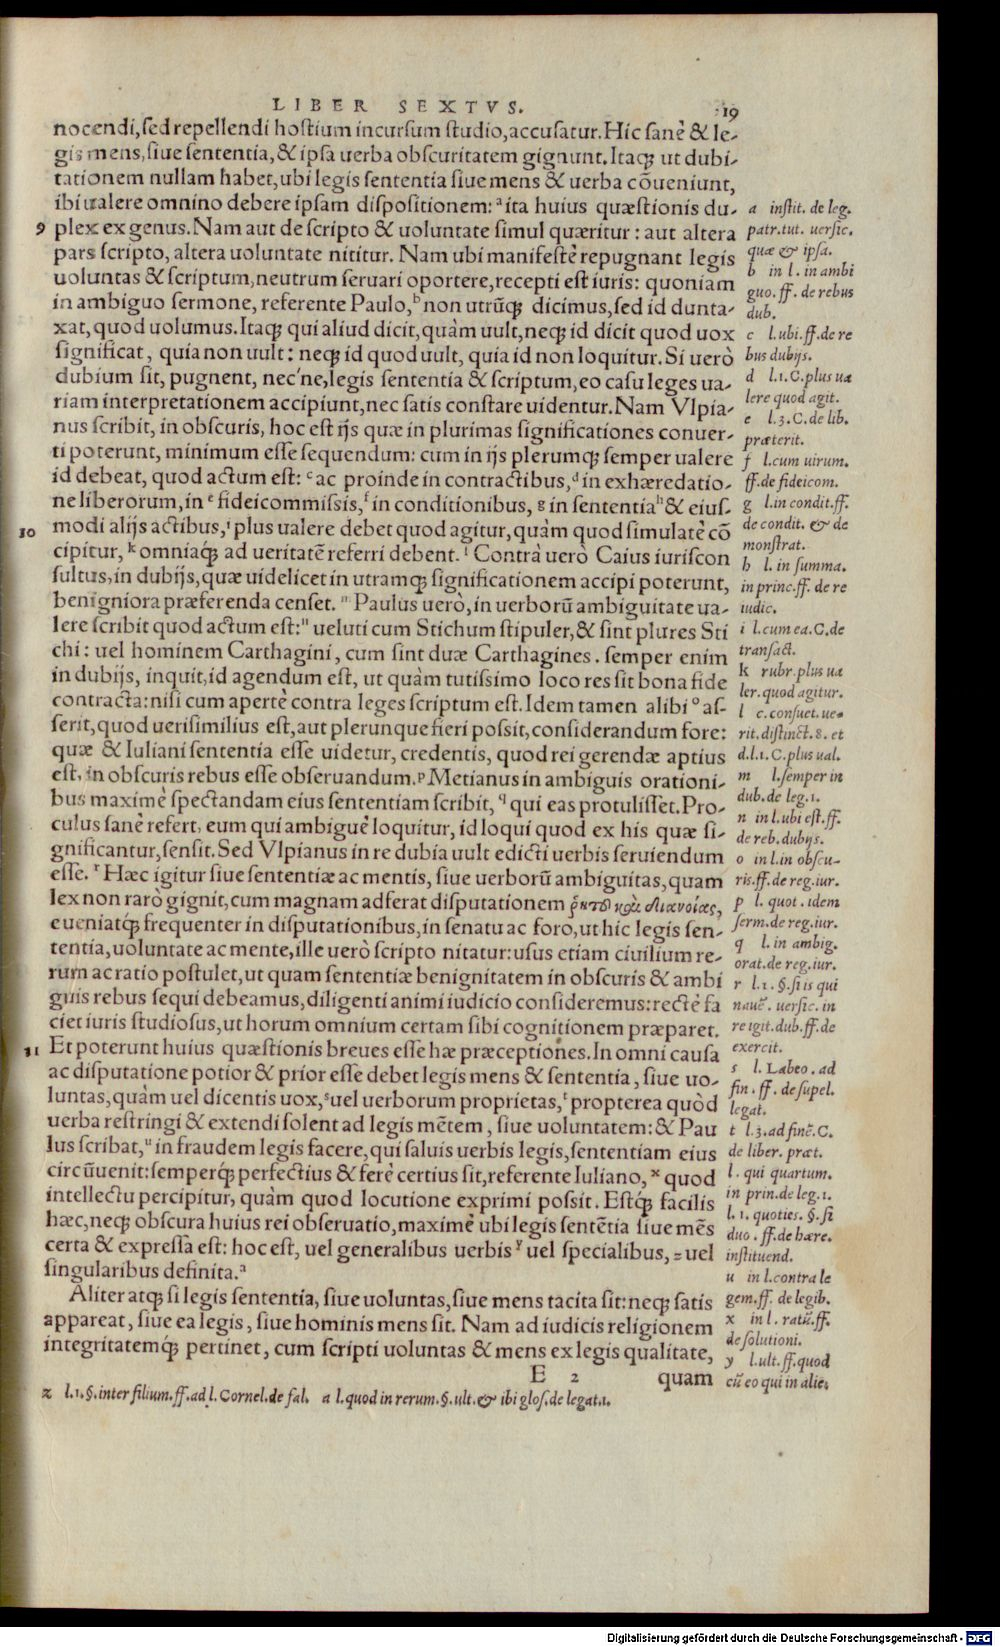 LIBER SEXTVS. 19
nocendi, sed repellendi hostium incursum studio, accusatur. Hic sanè & le-
gis mens, siue sententia, & ipsa uerba obscuritatem gignunt. Itaq́; ut dubi-
tationem nullam habet, ubi legis sententia siue mens & uerba cōueniunt,
ibi ualere omnino debere ipsam dispositionem: ᵃ ita huius quæstionis du-
9 plex ex genus. Nam aut de scripto & uoluntate simul quæritur: aut altera
pars scripto, altera uoluntate nititur. Nam ubi manifestè repugnant legis
uoluntas & scriptum, neutrum seruari oportere, recepti est iuris: quoniam
in ambiguo sermone, referente Paulo, ᵇ non utrūq; dicimus, sed id dunta-
xat, quod uolumus. Itaq; qui aliud dicit, quàm uult, neq; id dicit quod uox
significat, quia non uult: neq; id quod uult, quia id non loquitur. Si uerò
dubium sit, pugnent, nec'ne, legis sententia & scriptum, eo casu leges ua-
riam interpretationem accipiunt, nec satis constare uidentur. Nam Vlpia-
nus scribit, in obscuris, hoc est ijs quæ in plurimas significationes conuer-
ti poterunt, minimum esse sequendum: cum in ijs plerumq; semper ualere
id debeat, quod actum est: ᶜ ac proinde in contractibus, ᵈ in exhæredatio-
ne liberorum, in ᵉ fideicommissis, ᶠ in conditionibus, ᵍ in sententia ʰ & eius-
10 modi alijs actibus, ⁱ plus ualere debet quod agitur, quàm quod simulatè cō
cipitur, ᵏ omniaq́; ad ueritatē referri debent. ˡ Contrà uerò Caius iuriscon
sultus, in dubijs, quæ uidelicet in utramq; significationem accipi poterunt,
benigniora præferenda censet. ᵐ Paulus uerò, in uerborū ambiguitate ua-
lere scribit quod actum est: ⁿ ueluti cum Stichum stipuler, & sint plures Sti
chi: uel hominem Carthagini, cum sint duæ Carthagines. semper enim
in dubijs, inquit, id agendum est, ut quàm tutissimo loco res sit bona fide
contracta: nisi cum apertè contra leges scriptum est. Idem tamen alibi ᵒ as-
serit, quod uerisimilius est, aut plerunque fieri possit, considerandum fore:
quæ & Iuliani sententia esse uidetur, credentis, quod rei gerendæ aptius
est, in obscuris rebus esse obseruandum. ᵖ Metianus in ambiguis orationi-
bus maximè spectandam eius sententiam scribit, ᑫ qui eas protulisset. Pro-
culus sanè refert, eum qui ambiguè loquitur, id loqui quod ex his quæ si-
gnificantur, sensit. Sed Vlpianus in re dubia uult edicti uerbis seruiendum
esse. ʳ Hæc igitur siue sententiæ ac mentis, siue uerborū ambiguitas, quam
lex non rarò gignit, cum magnam adferat disputationem ῥητοῦ καὶ διανοίας,
eueniatq́; frequenter in disputationibus, in senatu ac foro, ut hic legis sen-
tentia, uoluntate ac mente, ille uerò scripto nitatur: usus etiam ciuilium re-
rum ac ratio postulet, ut quam sententiæ benignitatem in obscuris & ambi
guis rebus sequi debeamus, diligenti animi iudicio consideremus: rectè fa
ciet iuris studiosus, ut horum omnium certam sibi cognitionem præparet.
11 Et poterunt huius quæstionis breues esse hæ præceptiones. In omni causa
ac disputatione potior & prior esse debet legis mens & sententia, siue uo-
luntas, quàm uel dicentis uox, ˢ uel uerborum proprietas, ᵗ propterea quòd
uerba restringi & extendi solent ad legis mētem, siue uoluntatem: & Pau
lus scribat, ᵘ in fraudem legis facere, qui saluis uerbis legis, sententiam eius
circūuenit: semperq́; perfectius & ferè certius sit, referente Iuliano, ˣ quod
intellectu percipitur, quàm quod locutione exprimi possit. Estq́; facilis
hæc, neq; obscura huius rei obseruatio, maximè ubi legis sentētia siue mēs
certa & expressa est: hoc est, uel generalibus uerbis ʸ uel specialibus, ᶻ uel
singularibus definita. ᵃ
Aliter atq; si legis sententia, siue uoluntas, siue mens tacita sit: neq; satis
appareat, siue ea legis, siue hominis mens sit. Nam ad iudicis religionem
integritatemq́; pertinet, cum scripti uoluntas & mens ex legis qualitate,
E 2 quam
a instit. de leg.
patr. tut. uersic.
quæ & ipsa.
b in l. in ambi
guo. ff. de rebus
dub.
c l. ubi. ff. de re
bus dubijs.
d l. 1. C. plus ua
lere quod agit.
e l. 3. C. de lib.
præterit.
f l. cum uirum.
ff. de fideicom.
g l. in condit. ff.
de condit. & de
monstrat.
h l. in summa.
in princ. ff. de re
iudic.
i l. cum ea. C. de
transact.
k rubr. plus ua
ler. quod agitur.
l c. consuet. ue-
rit. distinct. 8. et
d. l. 1. C. plus ual.
m l. semper in
dub. de leg. 1.
n in l. ubi est. ff.
de reb. dubijs.
o in l. in obscu-
ris. ff. de reg. iur.
p l. quot. idem
serm. de reg. iur.
q l. in ambig.
orat. de reg. iur.
r l. 1. §. si is qui
nauē. uersic. in
re igit. dub. ff. de
exercit.
s l. Labeo. ad
fin. ff. de supel.
legat.
t l. 3. ad finē. C.
de liber. præt.
l. qui quartum.
in prin. de leg. 1.
l. 1. quoties. §. si
duo. ff. de hære.
instituend.
u in l. contra le
gem. ff. de legib.
x in l. ratū. ff.
de solutioni.
y l. ult. ff. quod
cū eo qui in alie:
z l. 1. §. inter filium. ff. ad l. Cornel. de fal. a l. quod in rerum. §. ult. & ibi glos. de legat. 1.
Digitalisierung gefördert durch die Deutsche Forschungsgemeinschaft - DFG